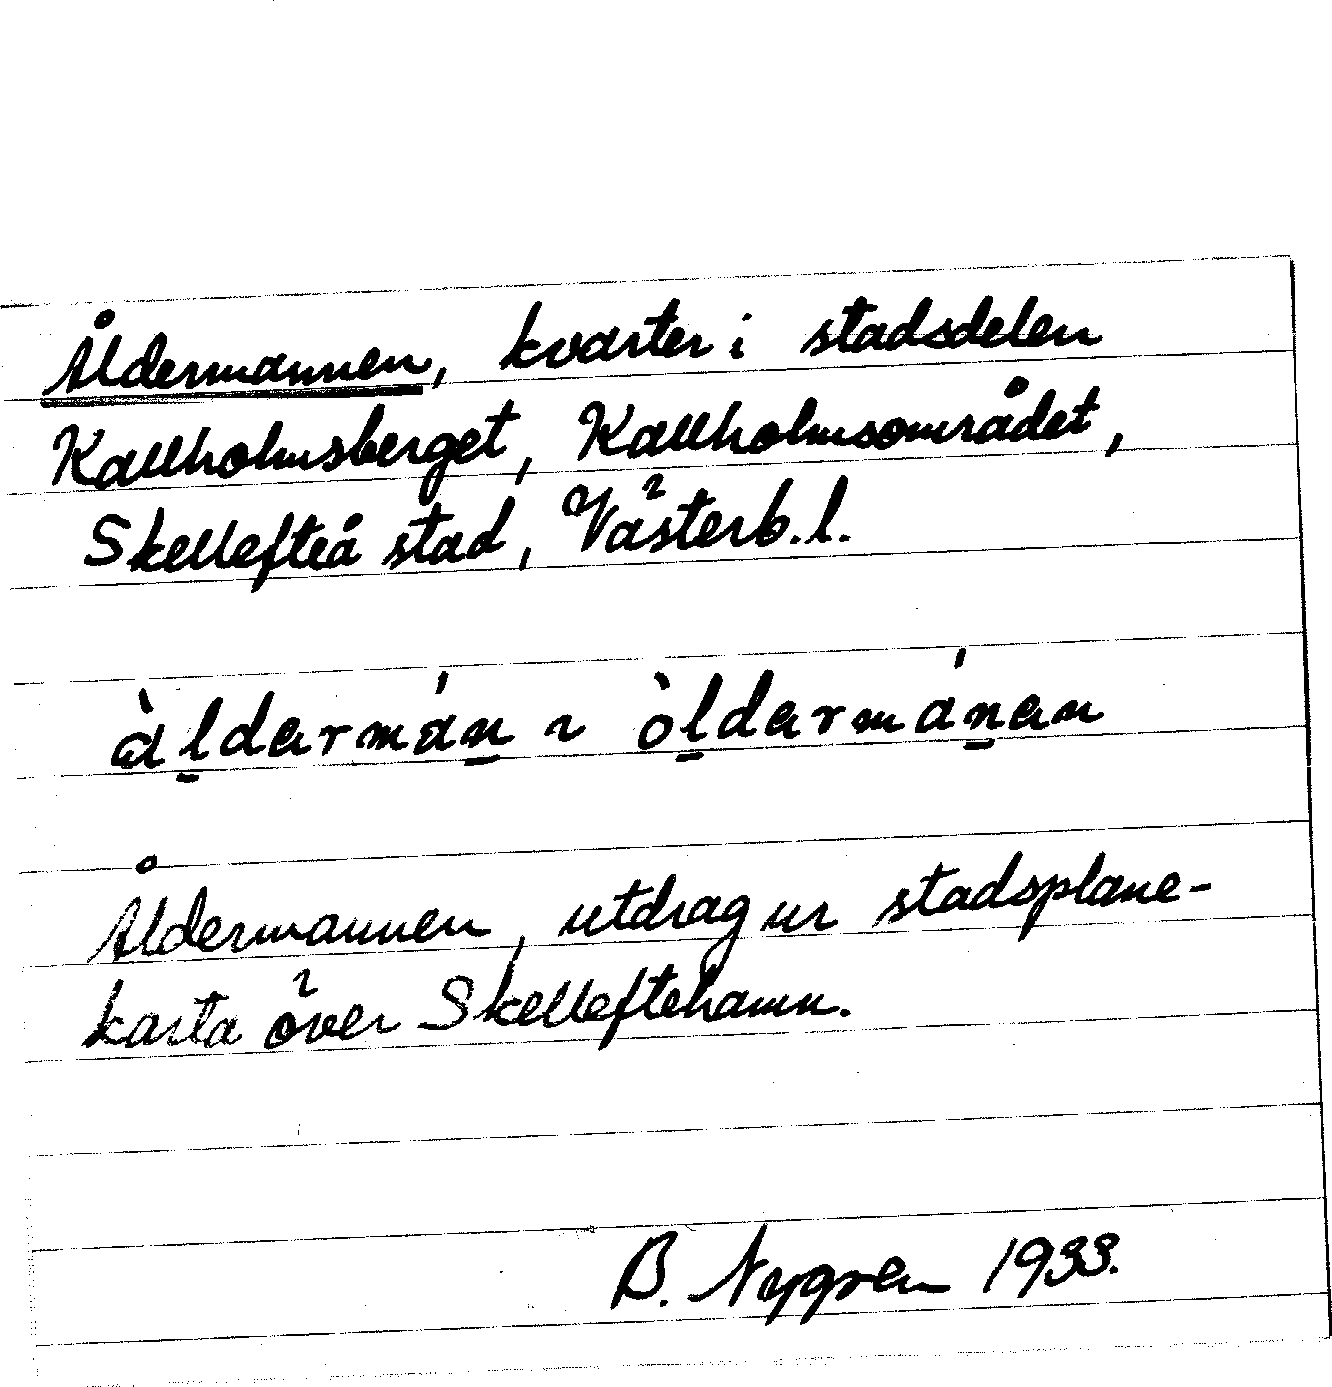 Åldermannen, kvarter i stadsdelen
Kallholmsberget, Kallholmsområdet,
Skellefteå stad, Västerb.l.
àl̠dərmán̠ ~ òl̠dərmán̠ən
Åldermannen, utdrag ur stadsplane-
karta över Skelleftehamn.
B. Nygren 1933.